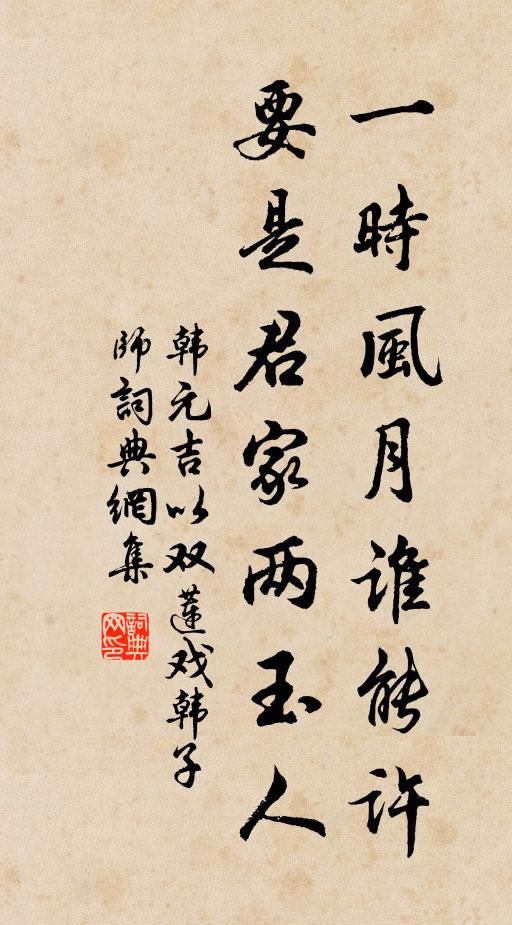 一時風月誰能許
要是君家两玉人
韩元吉以双蓮戏韩子
師詞典網集
詞典
网印